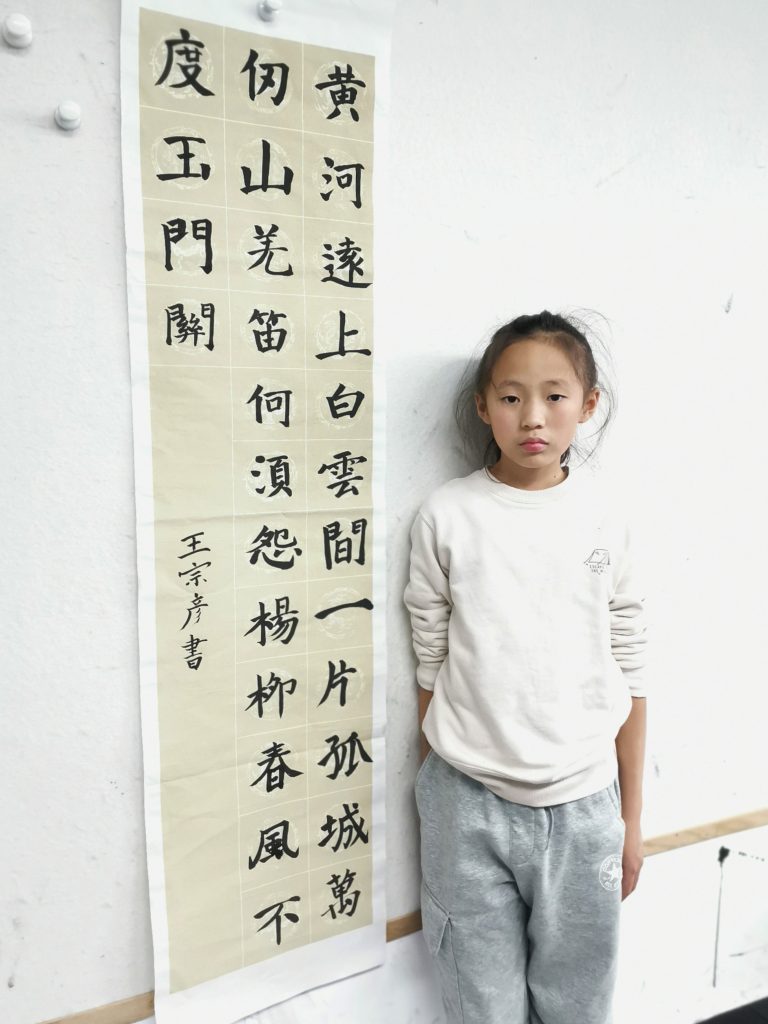 黄河遠上白雲間一片孤城萬
仞山羌笛何湏怨楊柳春風不
度玉門關
王宗彦書